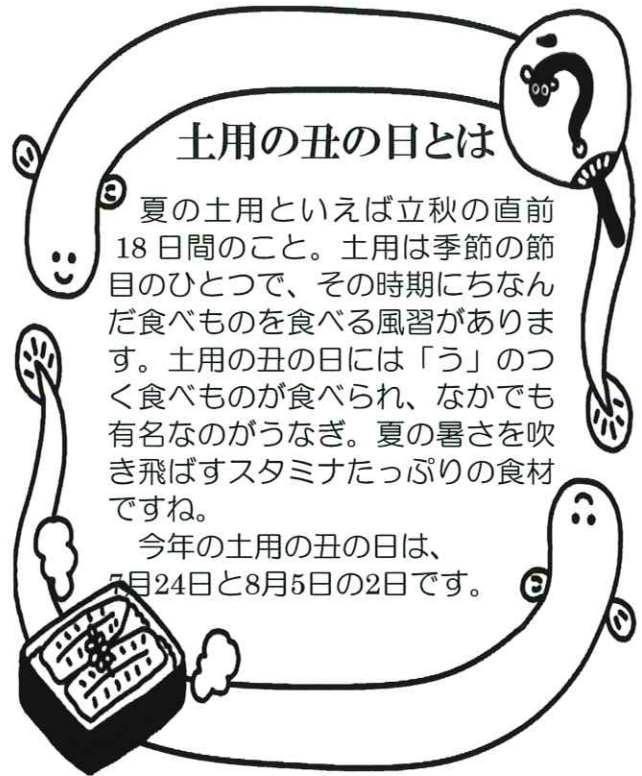 土用の丑の日とは
夏の土用といえば立秋の直前
18日間のこと。土用は季節の節
目のひとつで、その時期にちなん
だ食べものを食べる風習がありま
す。土用の丑の日には「う」のつ
く食べものが食べられ、なかでも
有名なのがうなぎ。夏の暑さを吹
き飛ばすスタミナたっぷりの食材
ですね。
今年の土用の丑の日は、
7月24日と8月5日の2日です。